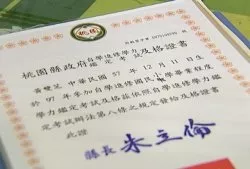 桃園
桃園縣政府自學進修學力鑑定考試及格證書
黃
中華民國 57 年 12 月 11 日生
於 97 年參加自學進修國民小學畢業程度
學力鑑定考試及格茲依照自學進修學力
鑑定考試辦法第八條之規定發給及格證書
此證
縣長 朱立倫